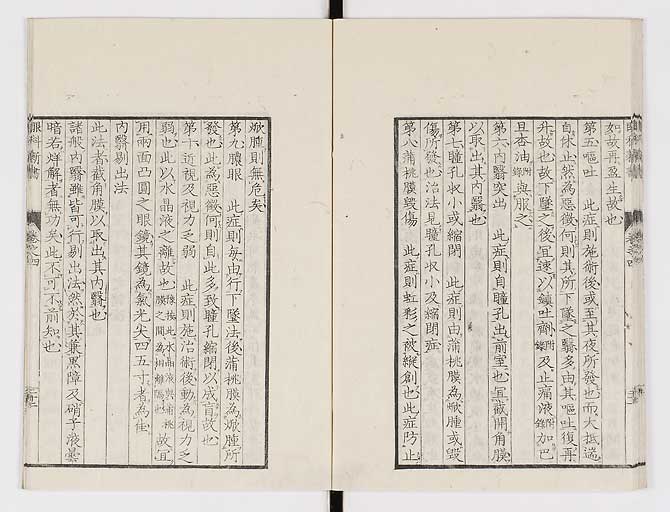 如故再盈生故也
第五嘔吐　此症則施術後或至其夜所發也而大抵湍
自休止然為惡徵何則其所下墜之翳多由其嘔吐復再
升故也故下墜之後宜速以鎮吐劑附錄及止痛液附錄加巴
旦杏油附錄與服之
第六內翳突出　此症則自瞳孔出前室也宜截開角膜
以取出其內翳也
第七瞳孔收小或縮閉　此症則由蒲桃膜為焮腫或毀
傷所發也治法見瞳孔收小及縮閉症
第八蒲桃膜毀傷　此症則虹彩之依縱創也此症防止
焮腫則無危矣
第九膿眼　此症則每由行下墜法後蒲桃膜為焮腫所
發也此為惡徵何則自此多致瞳孔縮閉以成盲故也
第十近視及視力乏弱　此症則施治術後動為視力乏
弱也此以水晶液之離故也故宜
用兩面凸圓之眼鏡其鏡為氣光尖四五寸者為佳
內翳剔出法
此法者截角膜以取出其內翳也
諸般內翳雖皆可行剔出法然於其兼黑障及硝子液曇
暗若烊解者無功矣此不可不前知也
眼科新書
卷之四